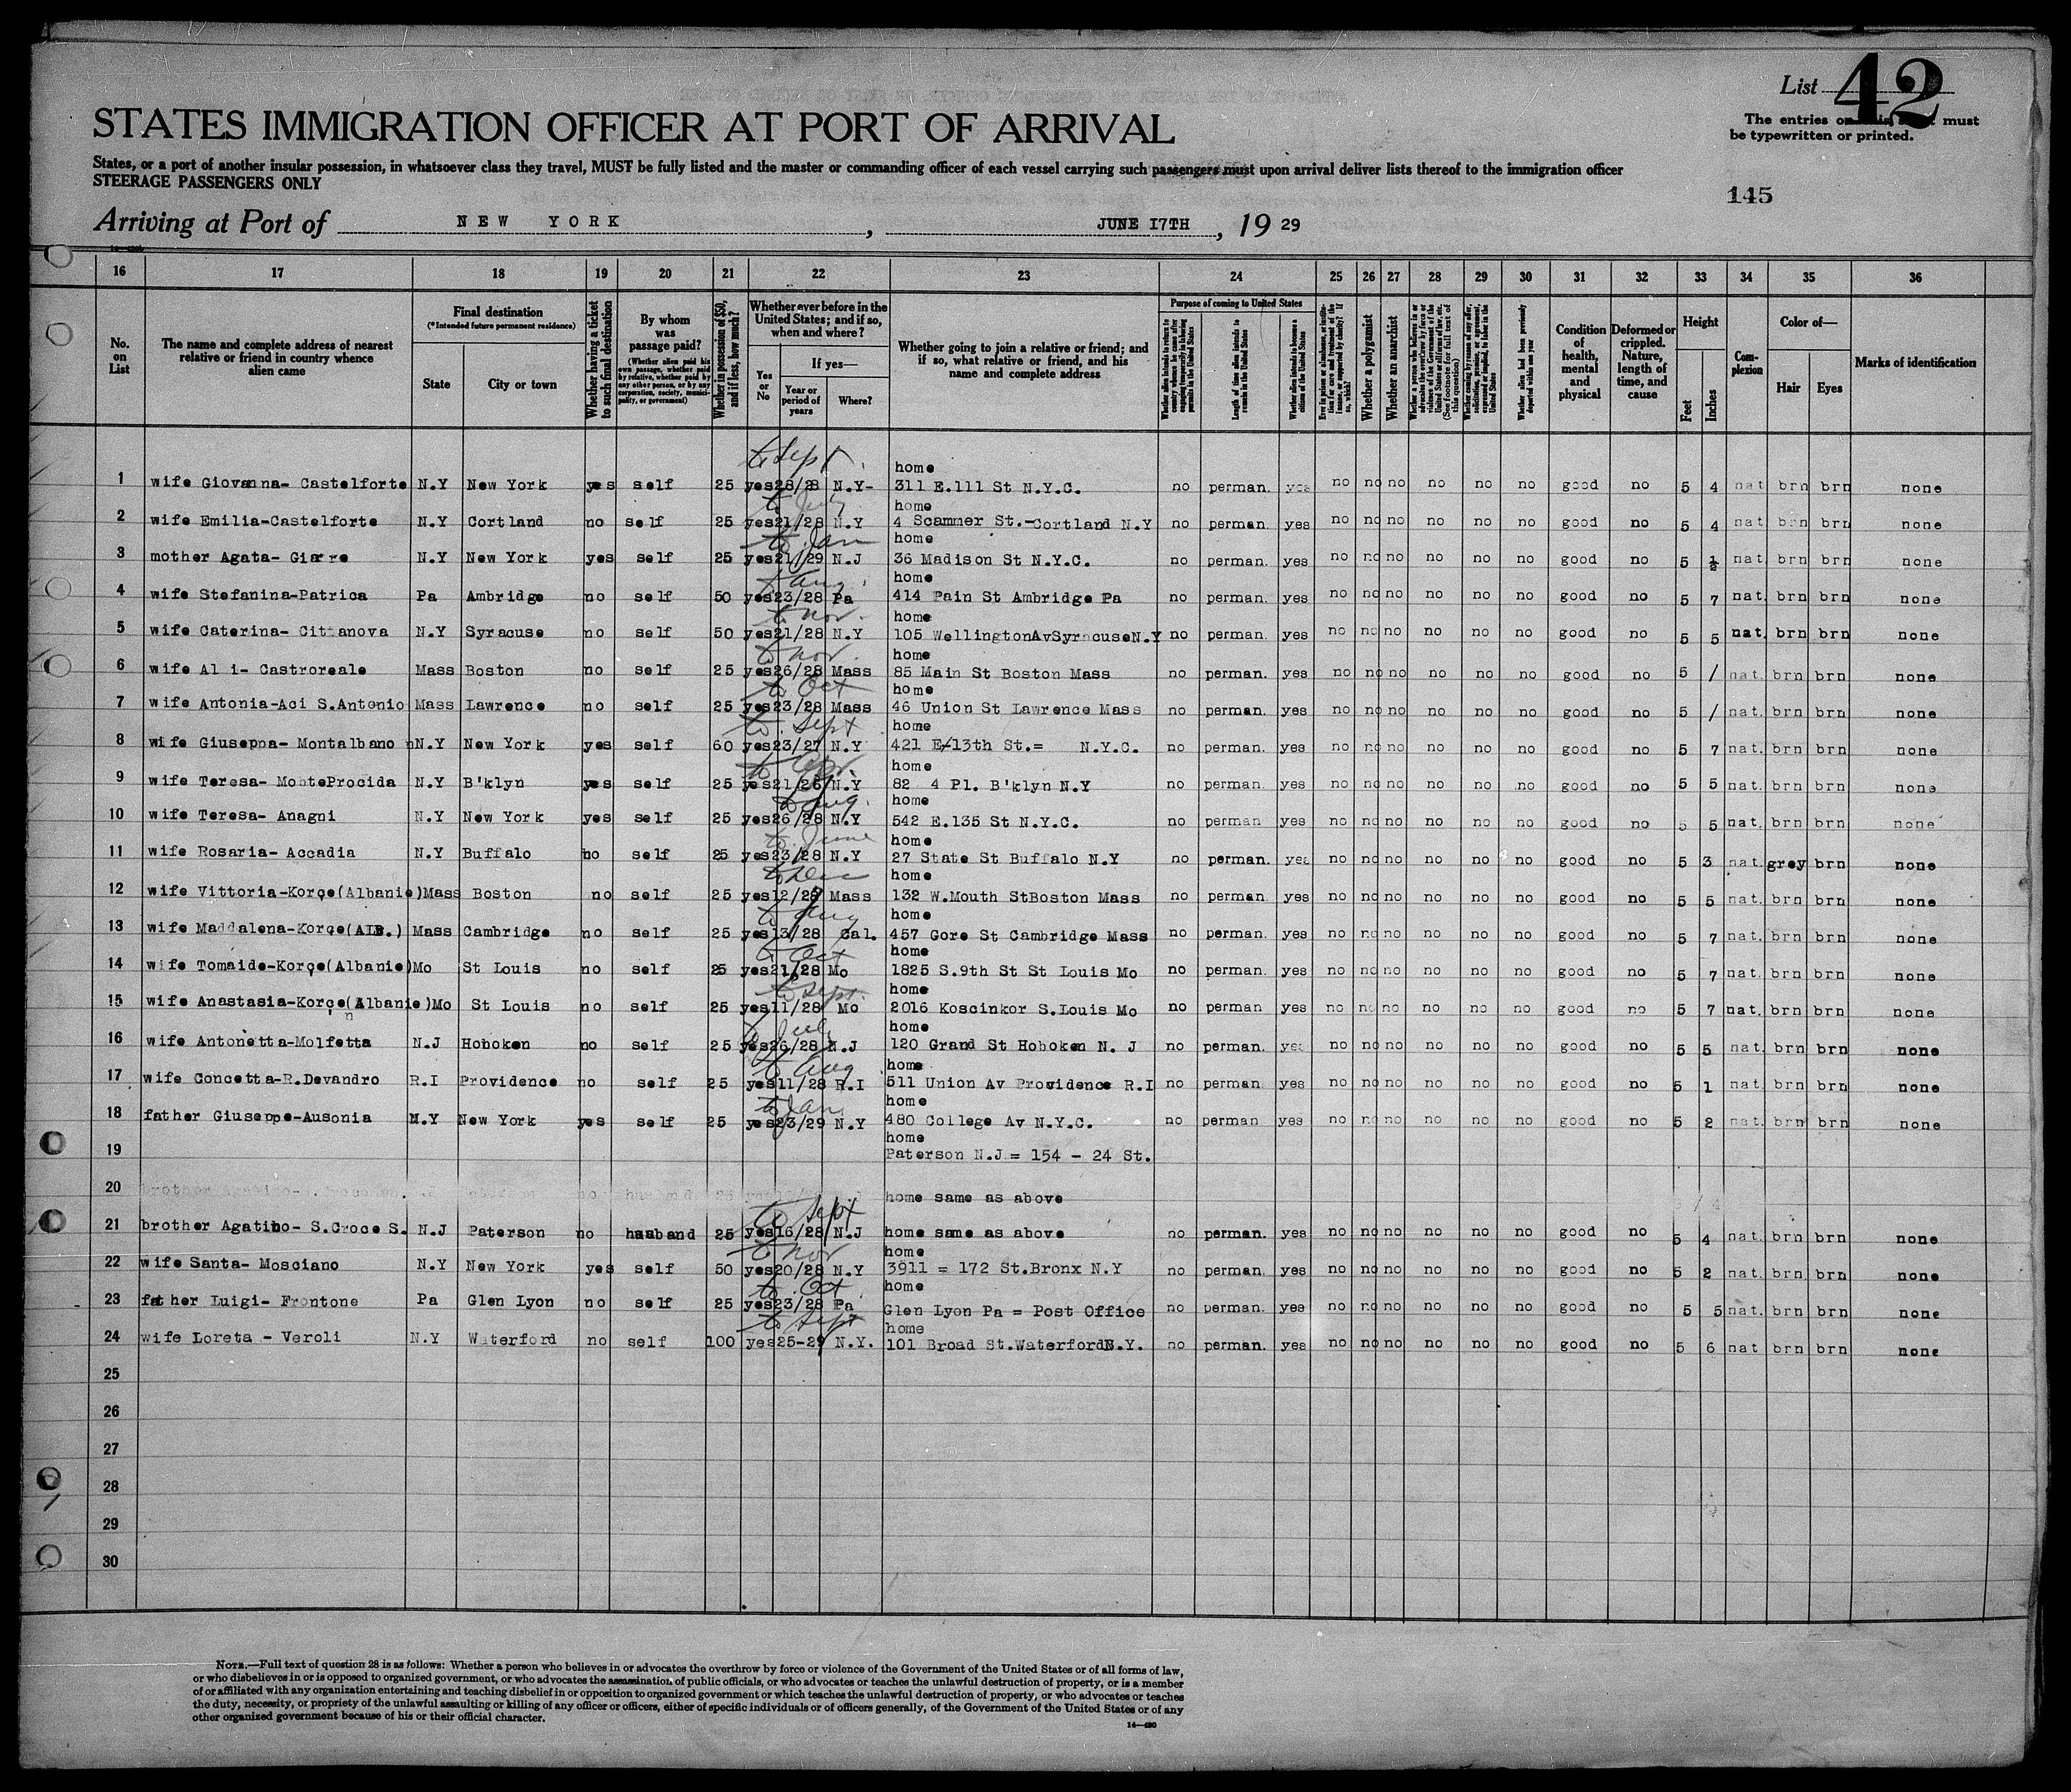 List 42
The entries on must
be typewritten or printed.
STATES IMMIGRATION OFFICER AT PORT OF ARRIVAL
States, or a port of another insular possession, in whatsoever class they travel, MUST be fully listed and the master or commanding officer of each vessel carrying such passengers must upon arrival deliver lists thereof to the immigration officer
STEERAGE PASSENGERS ONLY
145
Arriving at Port of NEW YORK, JUNE 17TH, 19 29
16 17 18 19 20 21 22 23 24 25 26 27 28 29 30 31 32 33 34 35 36
No. on List
The name and complete address of nearest relative or friend in country whence alien came
Final destination (*Intended future permanent residence)
State City or town
Whether having a ticket to such final destination
By whom was passage paid?
(Whether alien paid his own passage, whether paid by relative, whether paid by any other person, or by any corporation, society, municipality, or government)
Whether in possession of $50, and if less, how much?
Whether ever before in the United States; and if so, when and where?
Yes or No
If yes—
Year or period of years Where?
Whether going to join a relative or friend; and if so, what relative or friend, and his name and complete address
Purpose of coming to United States
Length of time alien intends to remain in the United States
Whether alien intends to become a citizen of the United States
Whether a polygamist
Whether an anarchist
Whether alien had been previously deported within one year
Condition of health, mental and physical
Deformed or crippled. Nature, length of time, and cause
Height
Feet Inches
Complexion
Color of—
Hair Eyes
Marks of identification
1 wife Giovanna- Castelforte N.Y New York yes self 25 to Sept yes 28/28 N.Y- home 311 E.111 St N.Y.C. no perman. yes no no no no no no good no 5 4 nat brn brn none
2 wife Emilia-Castelforte N.Y Cortland no self 25 to July yes 21/28 N.Y home 4 Scammer St.-Cortland N.Y no perman. yes no no no no no no good no 5 4 nat. brn brn none
3 mother Agata- Giarre N.Y New York yes self 25 to Jan yes 21/29 N.J home 36 Madison St N.Y.C. no perman. yes no no no no no no good no 5 ½ nat. brn brn none
4 wife Stefanina-Patrica Pa Ambridge no self 50 to Aug. yes 23/28 Pa home 414 Pain St Ambridge Pa no perman. yes no no no no no no good no 5 7 nat. brn brn none
5 wife Caterina- Cittanova N.Y Syracuse no self 50 to Nov. yes 21/28 N.Y home 105 WellingtonAvSyracuseN.Y no perman. yes no no no no no no good no 5 5 nat. brn brn none
6 wife Al i- Castroreale Mass Boston no self 25 to Nov. yes 26/28 Mass home 85 Main St Boston Mass no perman. yes no no no no no no good no 5 / nat. brn brn none
7 wife Antonia-Aci S.Antonio Mass Lawrence no self 25 to Oct yes 23/28 Mass home 46 Union St Lawrence Mass no perman. yes no no no no no no good no 5 / nat. brn brn none
8 wife Giuseppa- Montalbano N.Y New York yes self 60 to Sept yes 23/27 N.Y home 421 E/13th St.= N.Y.C. no perman. yes no no no no no no good no 5 7 nat. brn brn none
9 wife Teresa- MonteProcida N.Y B'klyn yes self 25 yes 21/26 N.Y home 82 4 Pl. B'klyn N.Y no perman. yes no no no no no no good no 5 5 nat. brn brn none
10 wife Teresa- Anagni N.Y New York yes self 25 to Aug. yes 26/28 N.Y home 542 E.135 St N.Y.C. no perman yes no no no no no no good no 5 5 nat. brn brn none
11 wife Rosaria- Accadia N.Y Buffalo no self 25 to June yes 23/28 N.Y home 27 State St Buffalo N.Y no perman. yes no no no no no no good no 5 3 nat. grey brn none
12 wife Vittoria-Korçe(Albanie)Mass Boston no self 25 to Dec yes 12/28 Mass home 132 W.Mouth StBoston Mass no perman. yes no no no no no no good no 5 5 nat. brn brn none
13 wife Maddalena-Korçe(ALB.) Mass Cambridge no self 25 to Aug yes 13/28 Cal. home 457 Gore St Cambridge Mass no perman. yes no no no no no no good no 5 7 nat. brn brn none
14 wife Tomaide-Korçe(Albanie)Mo St Louis no self 25 to Oct yes 21/28 Mo home 1825 S.9th St St Louis Mo no perman. yes no no no no no no good no 5 7 nat. brn brn none
15 wife Anastasia-Korçe(Albanie)Mo St Louis no self 25 to Sept. yes 11/28 Mo home 2016 Koscinkor S.Louis Mo no perman yes no no no no no no good no 5 7 nat. brn brn none
16 wife Antonetta-Molfetta N.J Hoboken no self 25 to July yes 26/28 N.J home 120 Grand St Hoboken N. J no perman. yes no no no no no no good no 5 5 nat. brn brn none
17 wife Concetta-R.Devandro R.I Providence no self 25 to Aug yes 11/28 R.I home 511 Union Av Providence R.I no perman yes no no no no no no good no 5 1 nat. brn brn none
18 father Giuseppe-Ausonia M.Y New York yes self 25 to Jan. yes 23/29 N.Y home 480 College Av N.Y.C. no perman yes no no no no no no good no 5 2 nat. brn brn none
19 home Paterson N.J = 154 - 24 St.
20 home same as above
21 brother Agatino- S.Croce S. N.J Paterson no husband 25 to Sept yes 16/28 N.J home same as above no perman. yes no no no no no no good no 5 4 nat. brn brn none
22 wife Santa- Mosciano N.Y New York yes self 50 to Nov yes 20/28 N.Y home 3911 = 172 St.Bronx N.Y no perman. yes no no no no no no good no 5 2 nat. brn brn none
23 father Luigi- Frontone Pa Glen Lyon no self 25 to Oct. yes 23/28 Pa home Glen Lyon Pa = Post Office no perman. yes no no no no no no good no 5 5 nat. brn brn none
24 wife Loreta - Veroli N.Y Waterford no self 100 to Sept yes 25-29 N.Y. home 101 Broad St.WaterfordN.Y. no perman. yes no no no no no no good no 5 6 nat brn brn none
25
26
27
28
29
30
NOTE.—Full text of question 28 is as follows: Whether a person who believes in or advocates the overthrow by force or violence of the Government of the United States or of all forms of law,
or who disbelieves in or is opposed to organized government, or who advocates the assassination of public officials, or who advocates or teaches the unlawful destruction of property, or is a member
of or affiliated with any organization entertaining and teaching disbelief in or opposition to organized government or which teaches the unlawful destruction of property, or who advocates or teaches
the duty, necessity, or propriety of the unlawful assaulting or killing of any officer or officers, either of specific individuals or of officers generally, of the Government of the United States or of any
other organized government because of his or their official character.
14—430